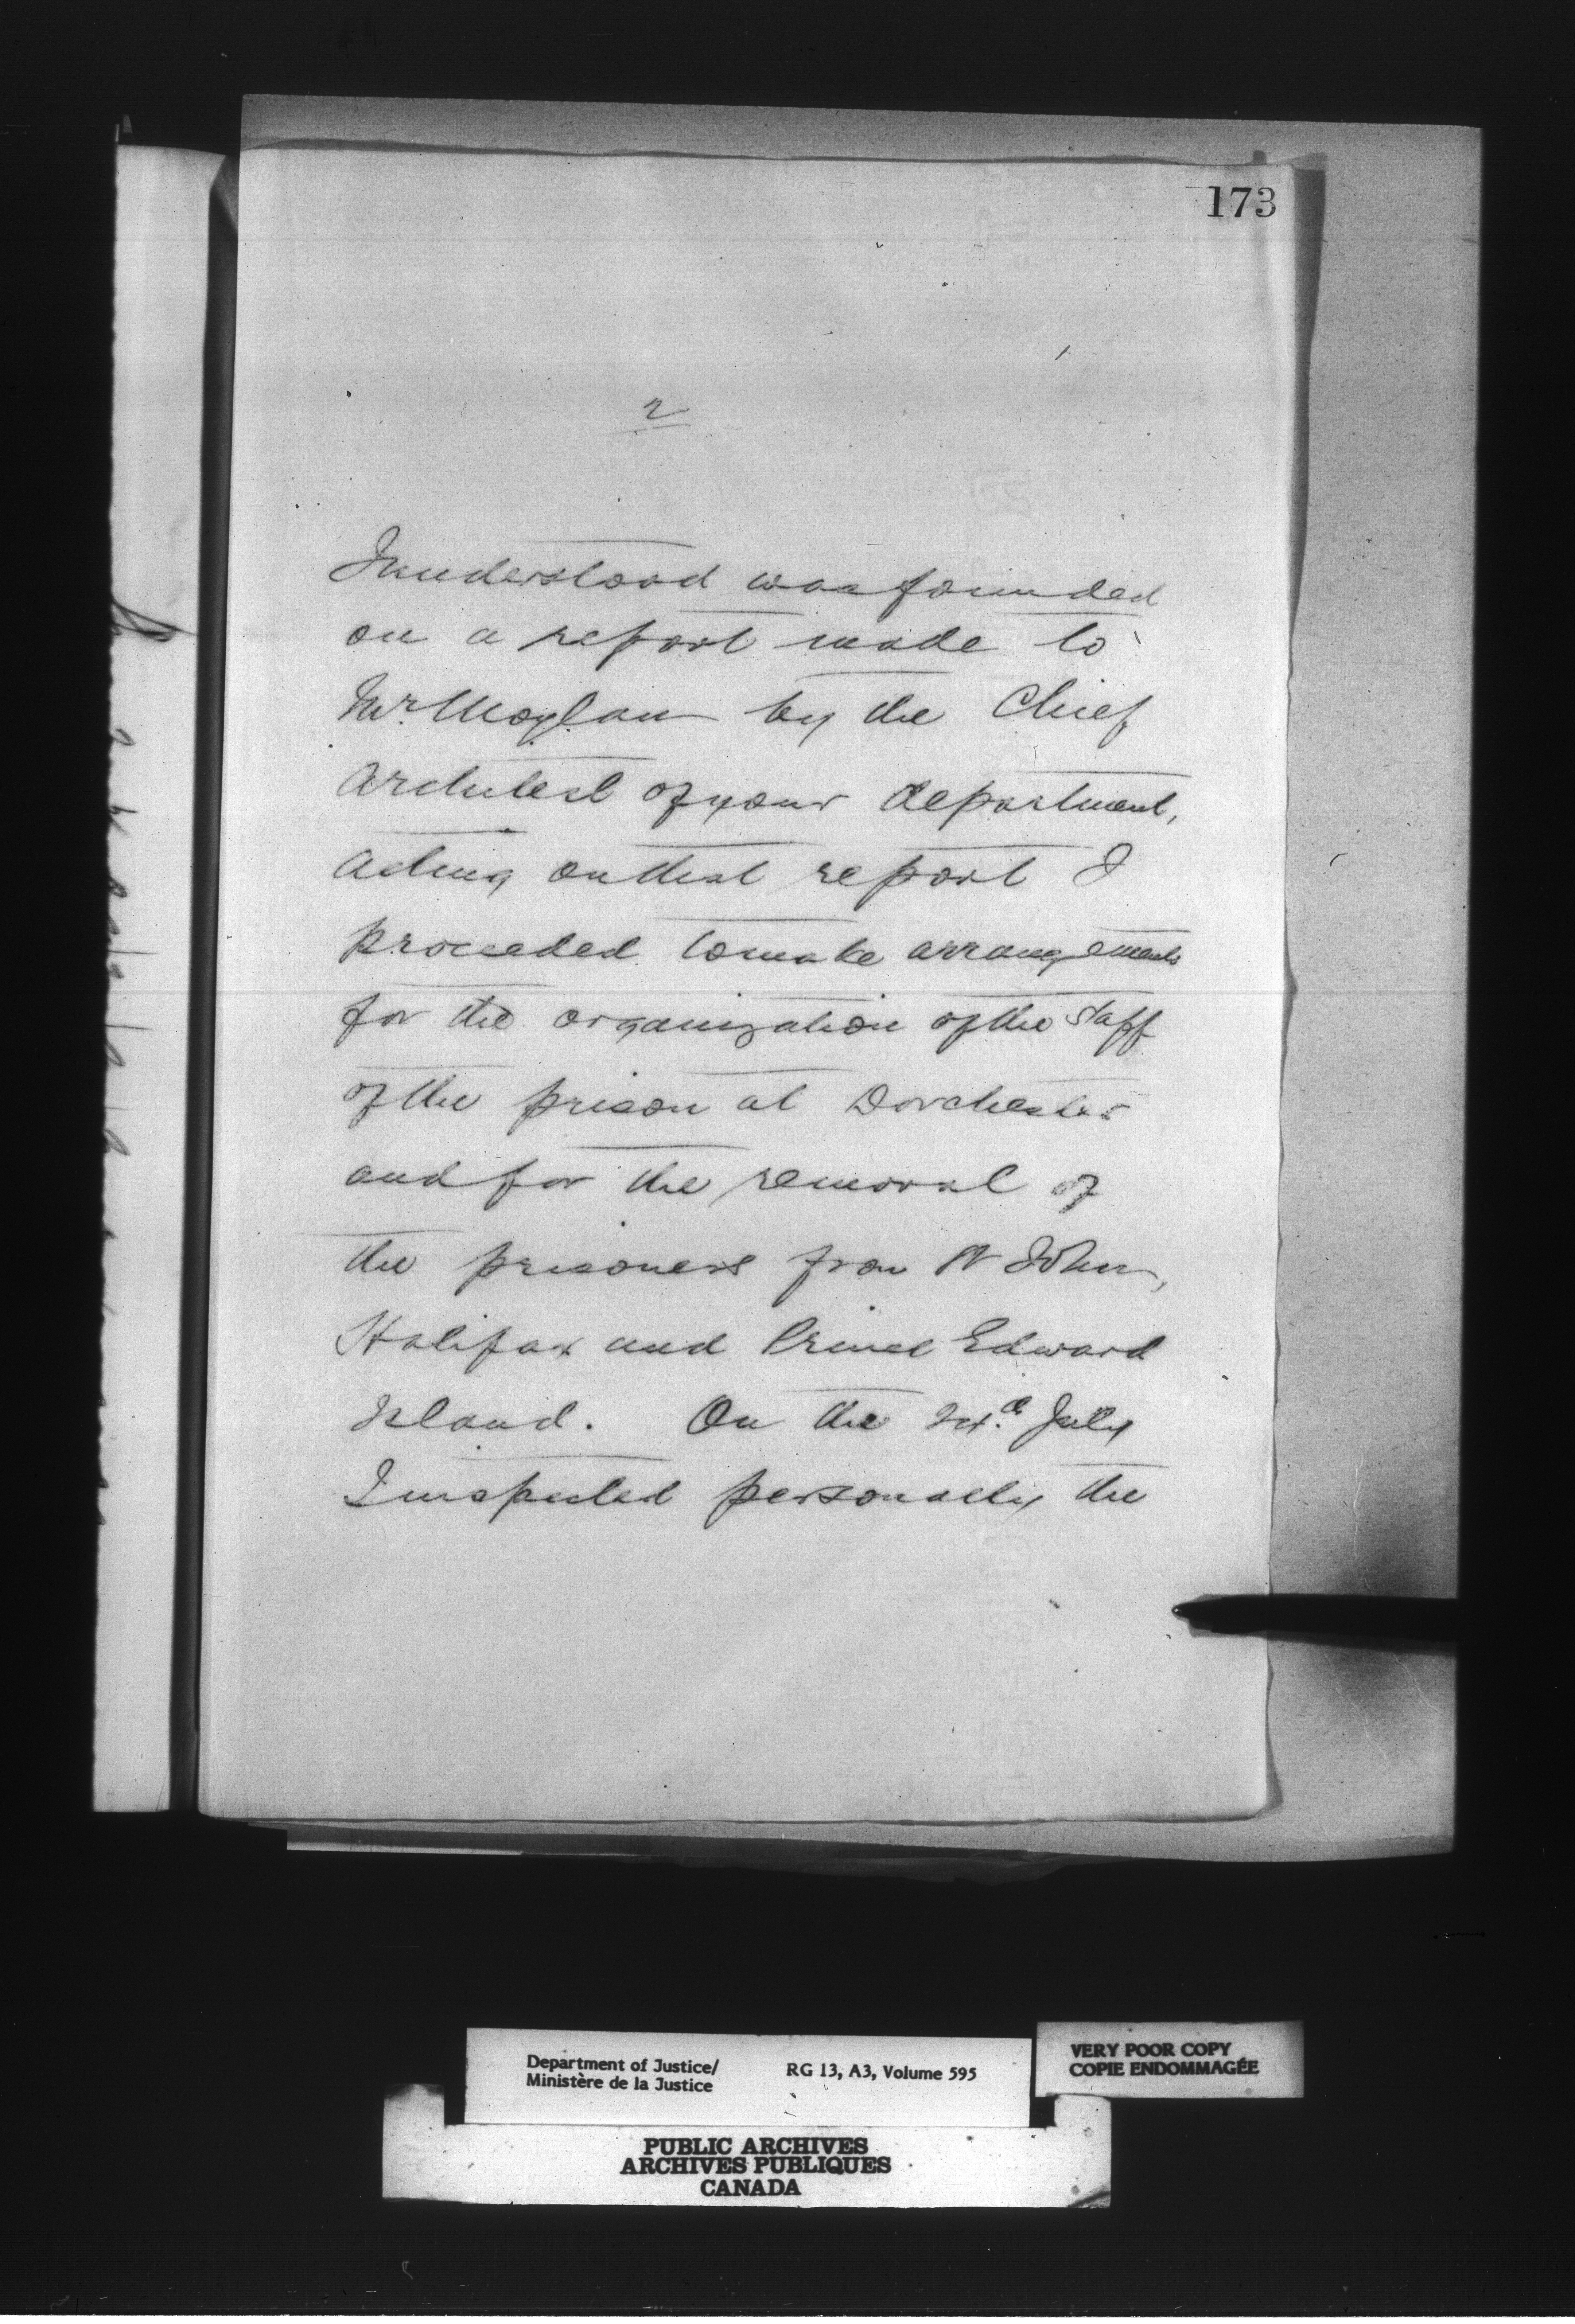 173
2
I understood was founded
on a report made to
Mr. Moylan by the Chief
Architect of your department,
Acting on that report I
proceeded to make arrangements
for the organization of the staff
of the prison at Dorchester
and for the removal of
the prisoners from St John,
Halifax and Prince Edward
Island. On the July
I inspected personally the
Department of Justice/ RG 13, A3, Volume 595
Ministère de la Justice
VERY POOR COPY
COPIE ENDOMMAGÉE
PUBLIC ARCHIVES
ARCHIVES PUBLIQUES
CANADA